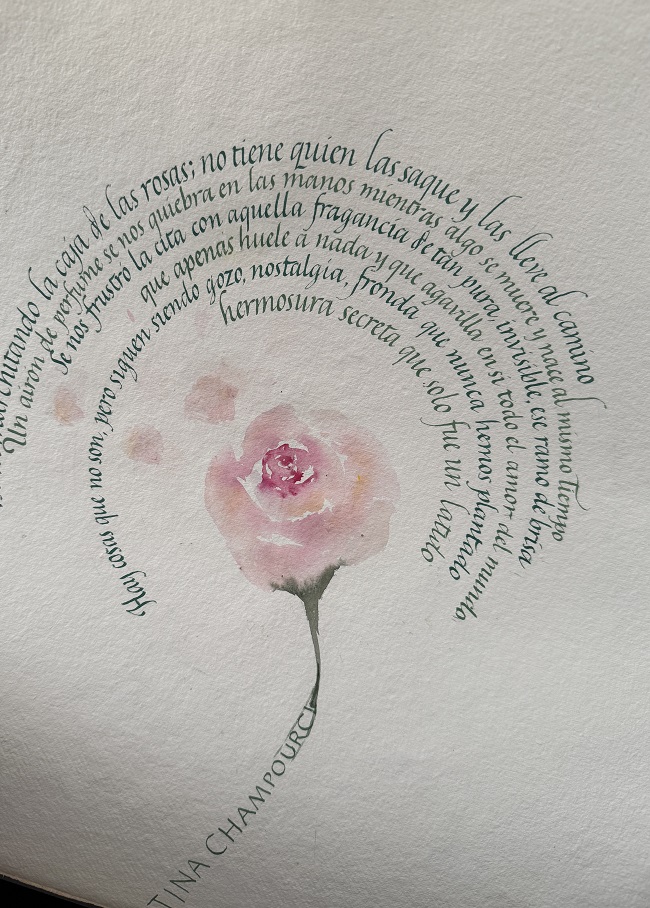 marchitando la caja de las rosas; no tiene quien las saque y las lleve al camino
Un airón de perfume se nos quiebra en las manos mientras algo se muere y nace al mismo tiempo
Se nos frustró la cita con aquella fragancia de tan pura, invisible, ese ramo de brisa
que apenas huele a nada y que agavilla en sí todo el amor del mundo
Hay cosas que no son, pero siguen siendo gozo, nostalgia, fronda que nunca hemos plantado
hermosura secreta que solo fue un latido
TINA CHAMPOURCI